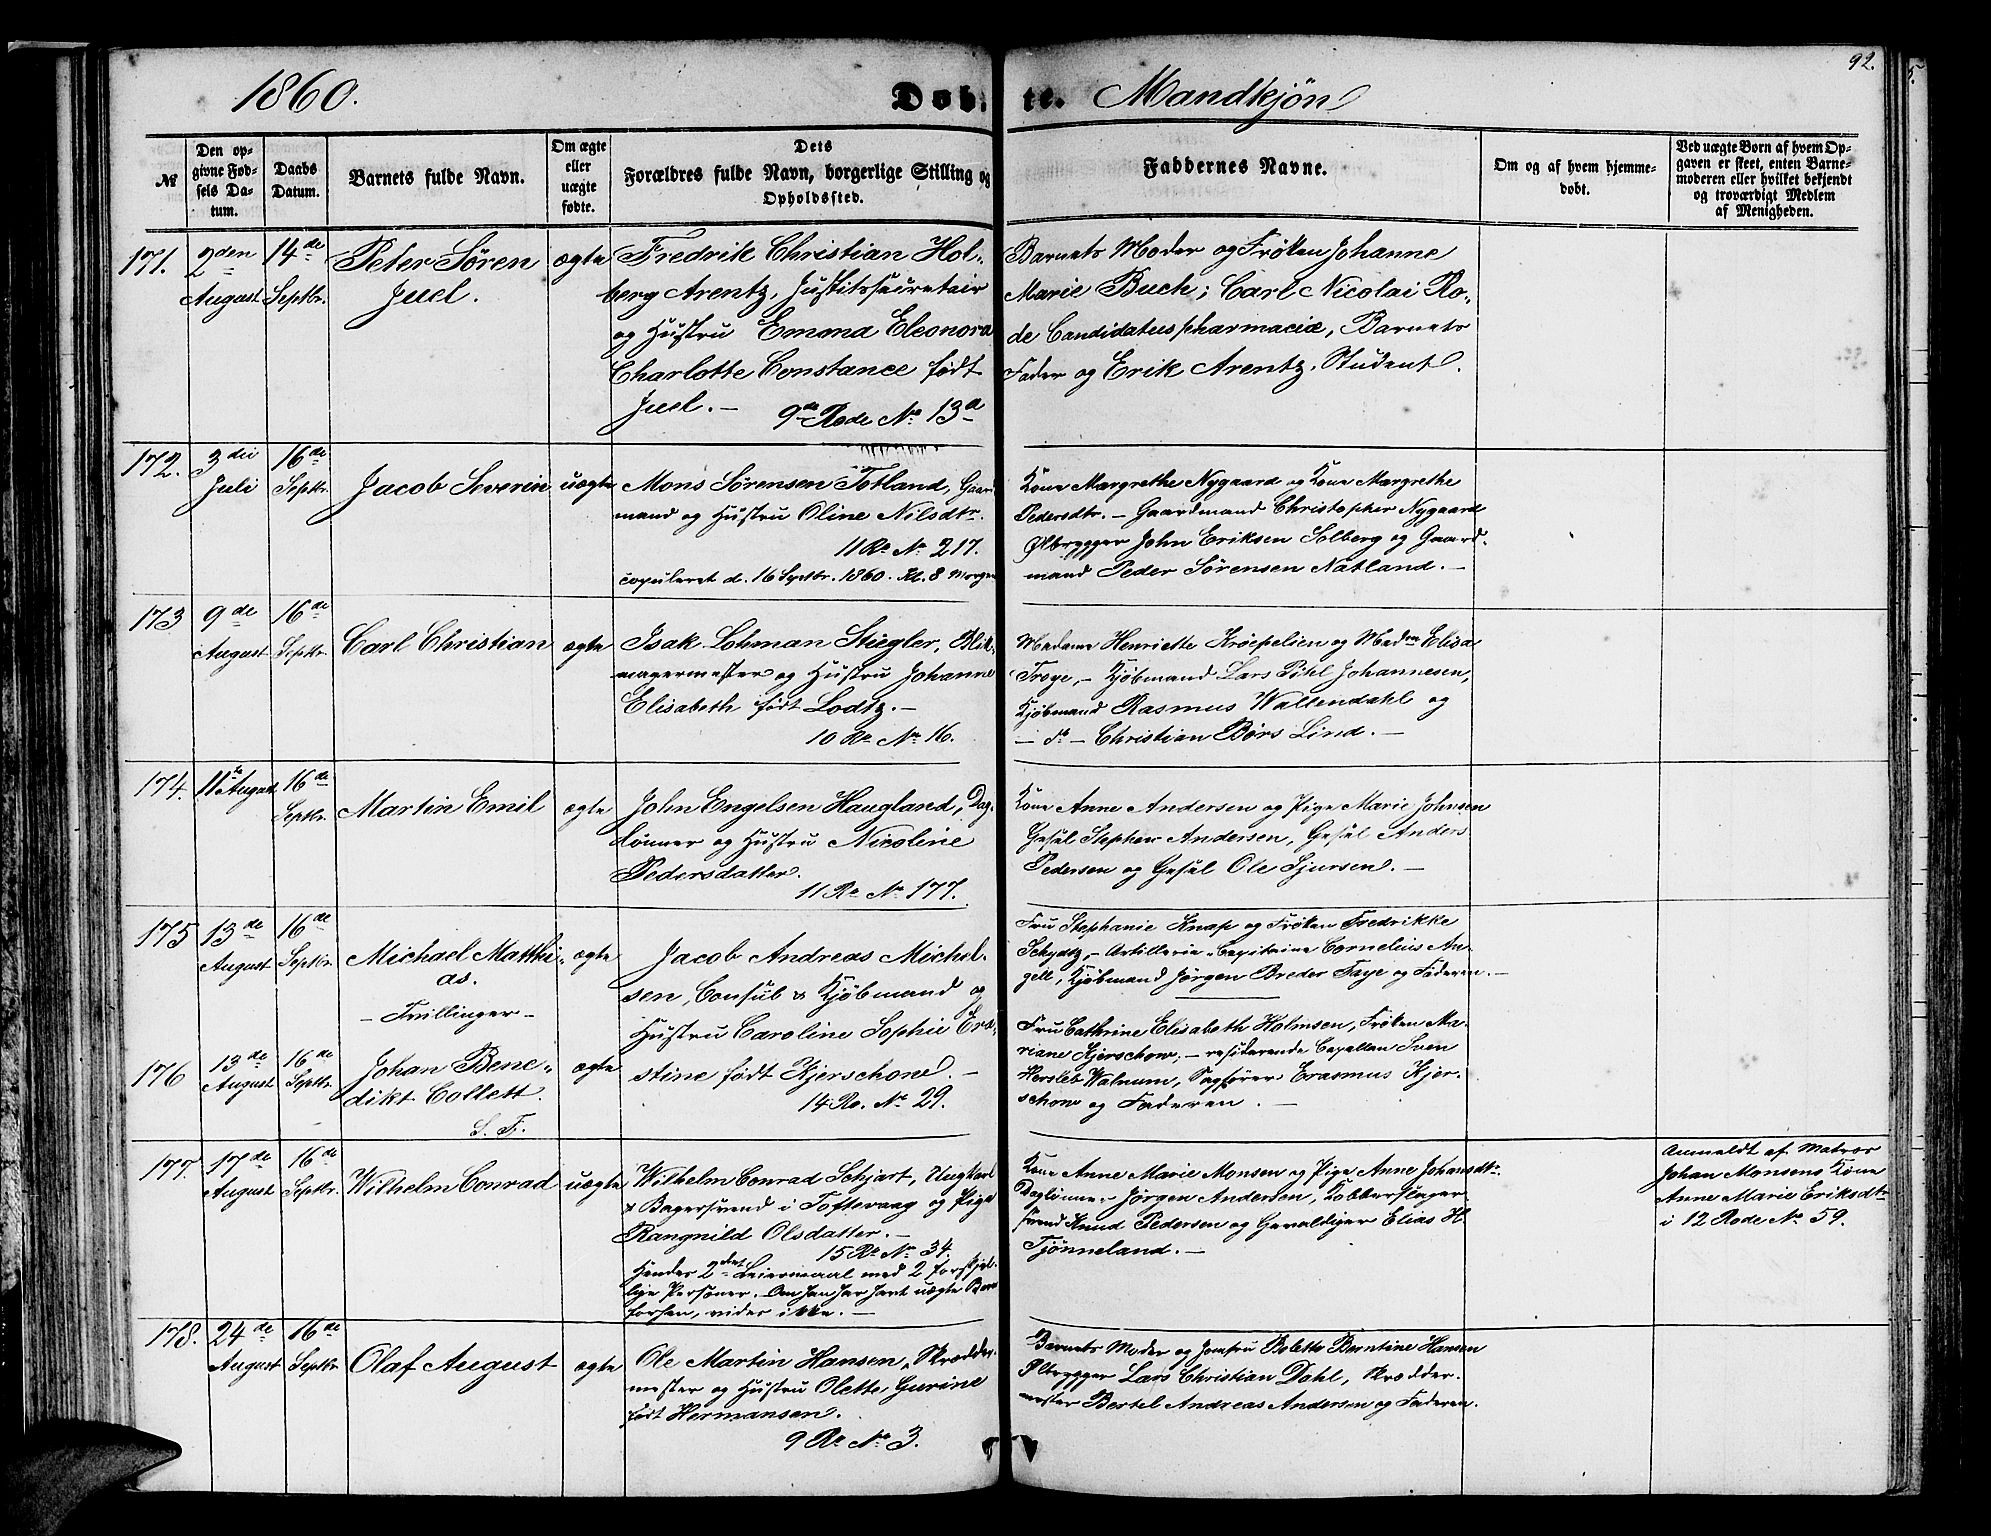 92.
1860.
Døbte. Mandkjøn
№
Den opgivne Fødsels Datum.
Daabs Datum.
Barnets fulde Navn.
Om ægte eller uægte fødte.
Dets Forældres fulde Navn, borgerlige Stilling og Opholdssted.
Faddernes Navne.
Om og af hvem hjemmedøbt.
Ved uægte Børn af hvem Opgaven er skeet, enten Barnemoderen eller hvilket bekjendt og troværdigt Medlem af Menigheden.
171.
2den August
14de Septbr.
Peter Søren
Juel.
ægte
Fredrik Christian Hol-
berg Arentz, Justitssecretair
og Hustru Emona Eleonora
Charlotte Constance født
Juel. –
9de Rode No. 13a
Barnets Moder og Frøken Johanne
Marie Buch; Carl Nicolai Ro-
de Candidatus pharmaciæ, Barnets
Fader og Erik Arentz, Student.
172.
3die Juli
16de Septbr.
Jacob Severin
uægte
Mons Sørensen Totland, Gaard-
mand og Hustru Oline Nilsdtr.
11 Re No. 217.
copuleret d. 16 Septbr. 1860. Kl. 8 Morgen
Kone Margrethe Nygaard og Kone Margrethe
Pedersdtr. – Gaardmand Christopher Nygaard
Ølbrygger John Eriksen Solberg og Gaard-
mand Peder Sørensen Natland. –
173
9de August
16de Septbr.
Carl Christian
ægte
Isak Lohman Stiegler, Blik-
magermester og Hustru Johanne
Elisabeth født Lodtz. –
10 Re No. 16.
Madame Henriette Krøepelien og Madm Elisa
Troye, – Kjøbmand Lars Pihl Johannesen,
Kjøbmand Rasmus Wallendahl og
– do – Christian Børs Lind. –
174.
11te August
16de Septbr.
Martin Emil
ægte
John Engelsen Haugland, Dag-
lønner og Hustru Nicoline
Pedersdatter.
11 Re No. 177.
Kone Anne Andersen og Pige Marie Johnsen
Gesel Stephen Andersen, Gesel Anders
Pedersen og Gesel Ole Sjursen. –
175
13de August
16de Septbr.
Michael Matthi-
as.
– Tvillinger –
ægte
Jacob Andreas Michel-
sen, Consul & Kjøbmand og
Hustru Caroline Sophie Era-
stine født Kjerschow. –
14 Ro. No. 29.
Fru Stephanie Knap og Frøken Fredrikke
Schydtz, – Artillerie-Capitaine Cornelius An-
gell, Kjøbmand Jørgen Breder Faye og Faderen. –
176
13de August
16de Septbr.
Johan Bene-
dikt Collett.
S. F.
ægte
Fru Cathrine Elisabeth Holmsen, Frøken Ma-
riane Kjerschow; – residerende Capellan Sven
Hersleb Walnum, Sagfører Erasmus Kjer-
schow og Faderen. –
177.
17de August
16de Septbr.
Wilhelm Conrad
uægte
Wilhelm Conrad Schjart, Ungkarl
& Bagersvend i Toftevaag og Pige
Rangnild Olsdatter. –
15 Re No. 34.
Hendes 2det Leiermaal med 2 forskjel-
lige Personer. – Om han har havt uægte Barn
forhen, vides ikke. –
Kone Anne Marie Monsen og Pige Anne Johansdtr.
Daglønner Jørgen Andersen, Kobberslager-
svend Knud Pedersen og Gevaldiger Elias H.
Tjønneland. –
Anmeldt af Matros
Johan Monsens Kone
Anne Marie Eriksdtr
i 12 Rode No. 59.
178.
24de August
16de Septbr.
Olaf August
ægte
Ole Martin Hansen, Skrædder-
mester og Hustru Olette Gurine
født Hermansen.
9 Re No. 3.
Barnets Moder og Jomfru Bolette Berntine Hansen
Ølbrygger Lars Christian Dahl, Skrædder-
mester Bertel Andreas Andersen og Faderen.